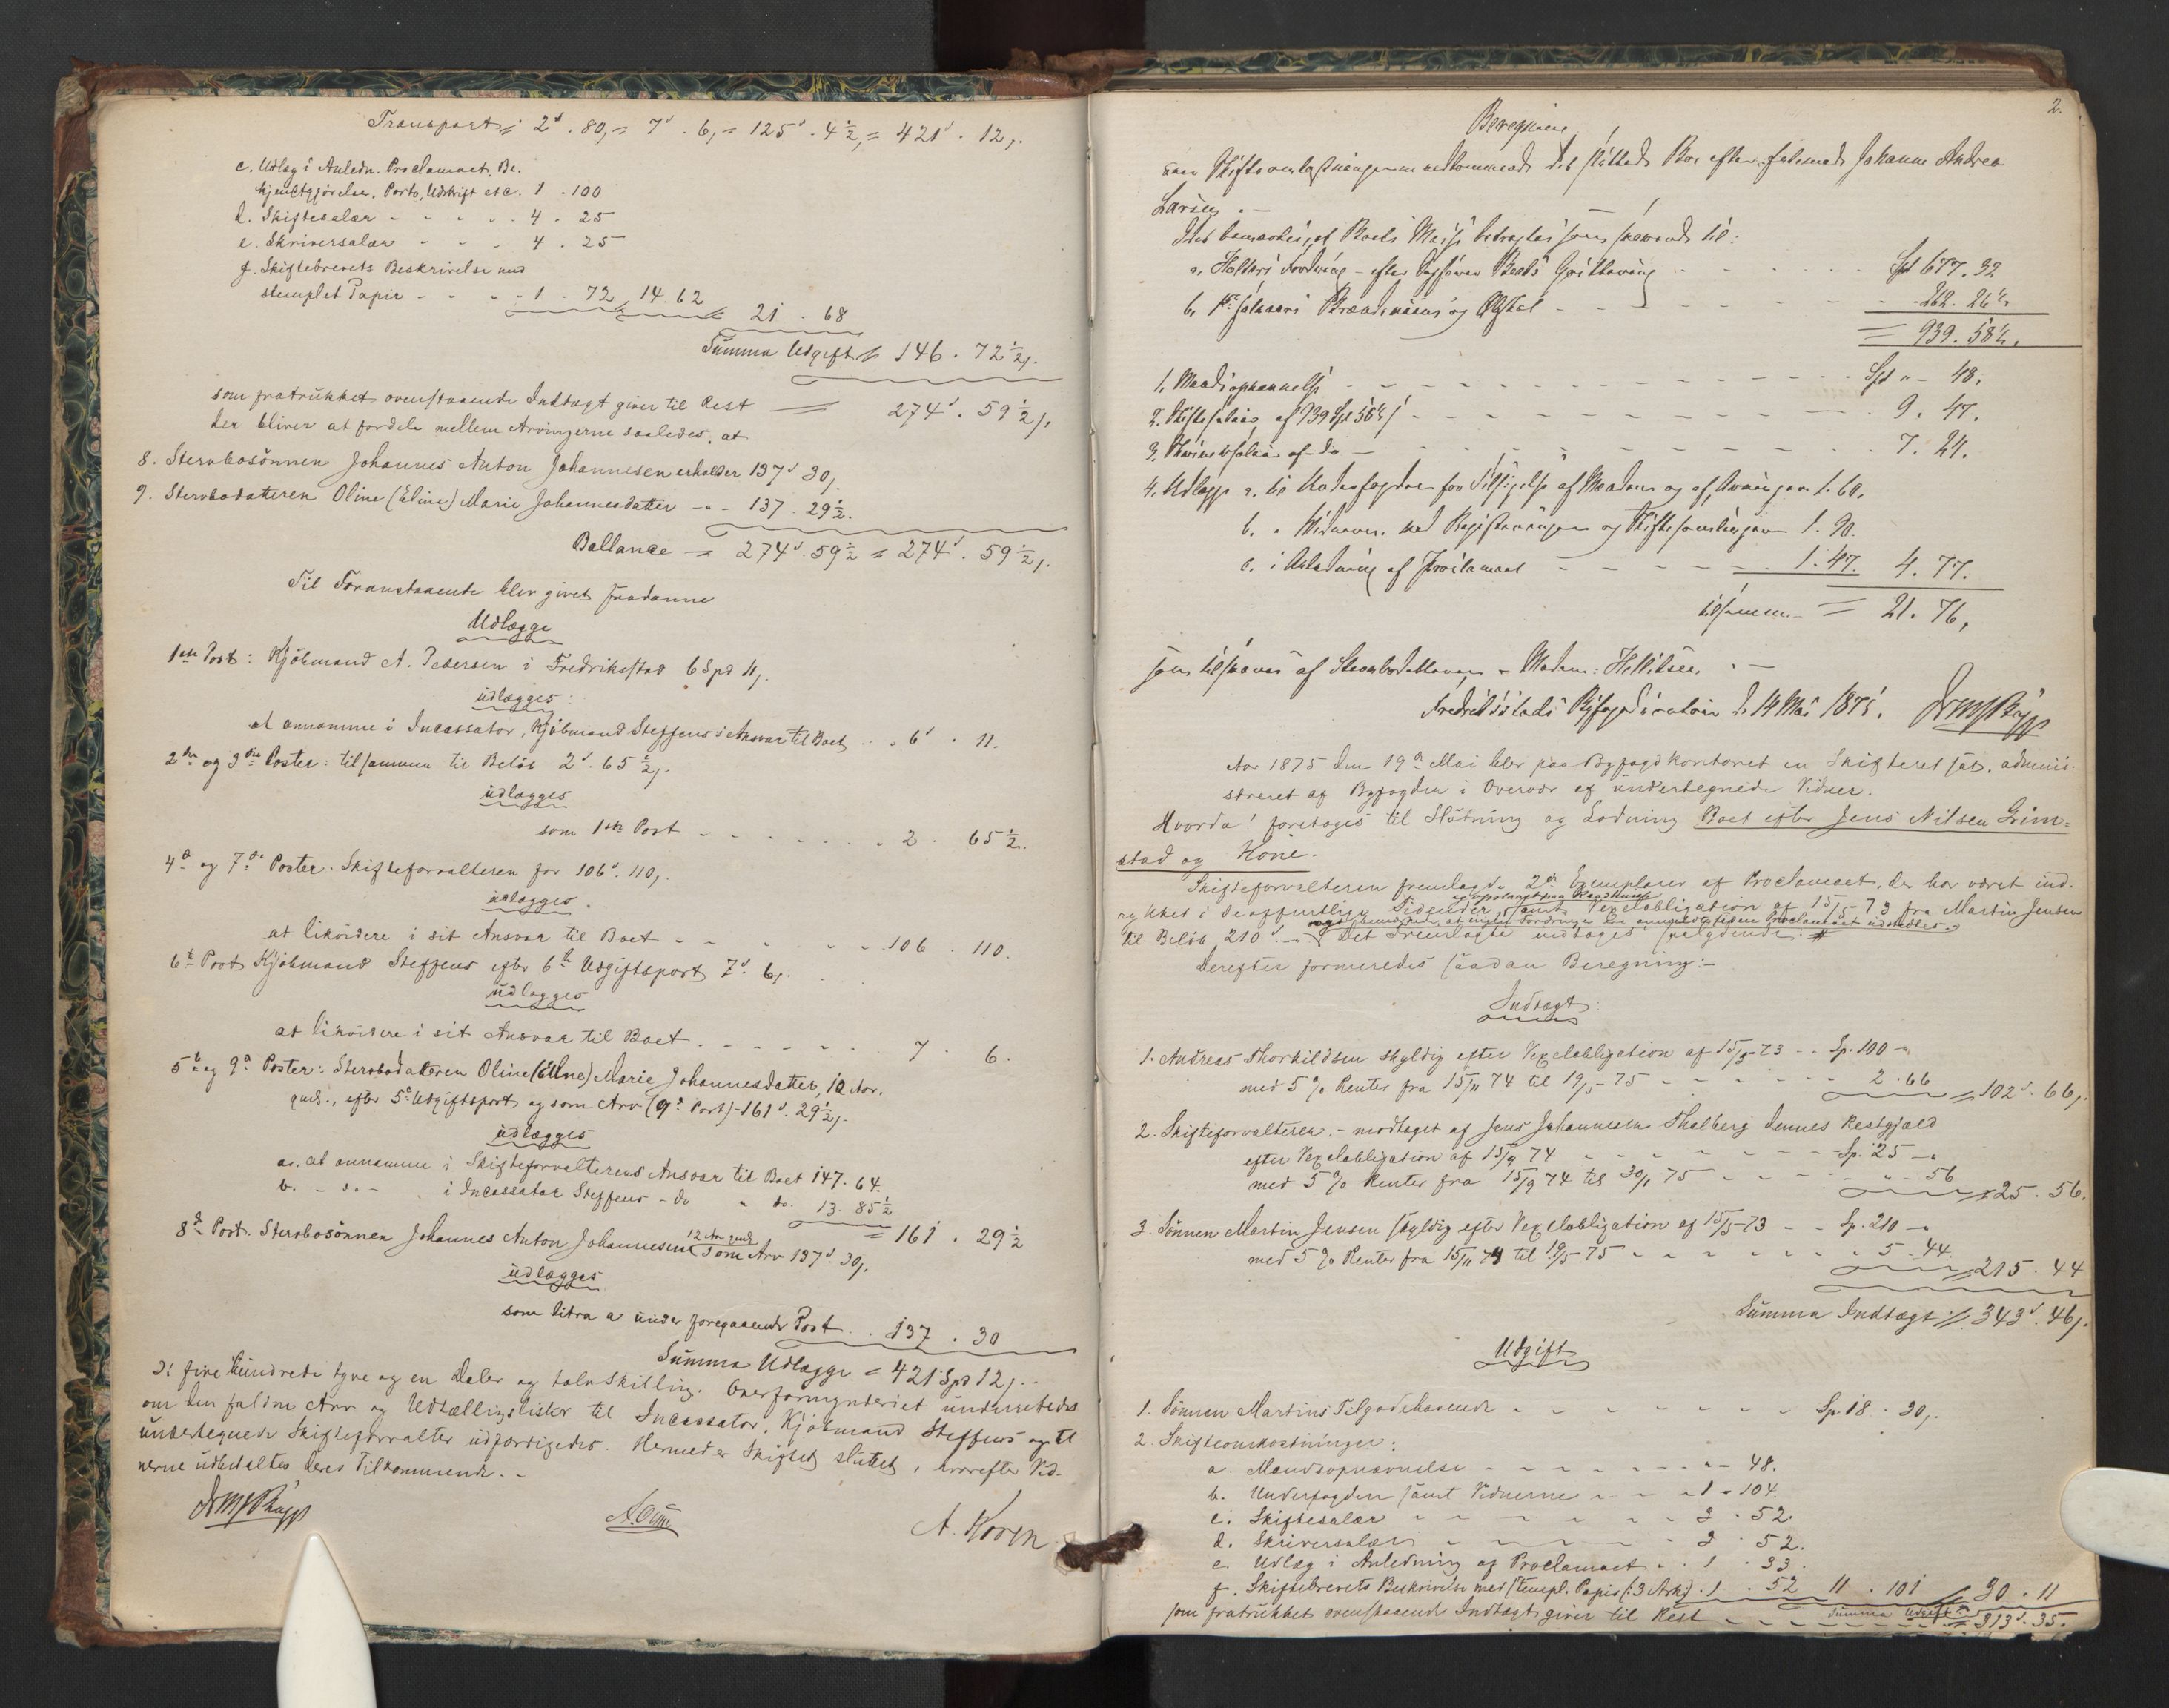 Transport = 2d. 80, = 7d. 6, = 125d. 4 1/2, = 421d. 12,.
c. Udlæg i Anledn. Proclamaet, Be-
kjendtgjørelse, Porto, Udskrift etc. 1 . 100
d. Skiftesalær - - - - 4 . 25
e. Skriversalær - - - 4 . 25
f. Skiftebrevets Beskrivelse med
stemplet Papir - - - - 1 . 72 14.62
21 . 68
Summa Udgift 146 . 72 1/2,.
som fratrukket ovenstaaende Indtægt giver til Rest = 274d. 59 1/2,.
der bliver at fordele mellem Arvingerne saaledes, at
8. Stervbosønnen Johannes Anton Johannesen erholder 137d 30,.
9. Stervbodatteren Oline (Eline) Marie Johannesdatter - - 137. 29 1/2.
Ballance = 274d. 59 1/2 = 274d. 59 1/2,.
Til Foranstaaende blev givet saadanne
Udlægge
1ste Post: Kjøbmand A. Petersen i Fredrikstad 6 Spd 11,.
udlægges:
at annamme i Incassator, Kjøbmand Steffens's Ansvar til Boet . . 6d . 11.
2den og 3die Poster: tilsammen til Beløb 2d. 65 1/2,.
udlægges
som 1ste Post - - - - - - 2 . 65 1/2.
4de og 7de Poster. Skifteforvalteren for 106d. 110,.
udlægges.
at likvidere i sit Ansvar til Boet - - - - - 106 . 110.
6te Post Kjøbmand Steffens efter 6te Udgiftspost 7d. 6,.
udlægges
at likvidere i sit Ansvar til Boet - - - - - 7 . 6.
5te og 9de Poster: Stervbodatteren Oline (Eline) Marie Johannesdatter, 10 Aar.
gml., efter 5te Udgiftspost og som Arv (9de Post) - 161d. 29 1/2,.
udlægges
a. at annamme i Skifteforvalterens Ansvar til Boet 147. 64.
b. - do - i Incassator Steffens - do " do. 13. 85 1/2
= 161 . 29 1/2
8de Post. Stervbosønnen Johannes Anton Johannesen 12 Aar gml. som Arv 137d. 30,.
udlægges
som litra a under foregaaende Post . . 137 . 30
Summa Udlægge = 421 Spd 12,.
ɔ: fire hundrede tyve og en Daler og tolv Skilling. Overformynderiet underrettedes
om den faldne Arv og Udtællingslister til Incassator, Kjøbmand Steffens og til
undertegnede Skifteforvalter udfærdigedes. Hermed er Skiftet sluttet, hvorefter Vid-
nerne udbetaltes deres Tilkommende. -
A. Koren
2.
Beregning
over Skifteomkostningerne vedkommende det sluttede Bo efter Johanne Andrea
Larsen. -
Det bemærkes, at Boets Masse betragtes som svarende til:
Spd 677. 32
262. 26 1/2
= 939. 58 1/2.
1. Mandsopnævnelse - - - - - Spd " - 48.
2. Skiftesalær af 939 Spd 58 1/2 - - - - - 9. 47.
3. Skriversalær af do - - - - - 7. 21.
4. Udlægge a. til Underfogden for Tilsigelse af Mændene og af Arvingerne 1. 60.
b. " Vidnerne ved Registreringen og Skiftesamlingerne 1. 90.
c. i Anledning af Proclamaet - - - - 1. 47. 4. 77.
tilsammen = 21. 76,
som tilsvares af Stervbodatteren, Madam Hellitsen. -
Fredriksstads Byfogedcontoir d. 14 Mai 1875.
Aar 1875 den 19de Mai blev paa Byfogdkontoret en Skifteret sat, admini-
streret af Byfogden i Overvær af undertegnede Vidner.
Hvorda! foretoges til Slutning og Lodning Boet efter Jens Nilsen Grim-
stad og Kone.
Skifteforvalteren fremlagde 2de Exemplarer af Proclamaet, der har været ind-
og opslaaet paa Raadhuset
rykket i de offentlige Tidender, samt Vexelobligation af 15/5-73 fra Martin Jensen
og bemærkede, at ingen Fordringer ere anmeldte siden Proclamaet udstedtes.
til Beløb 210d. - Det Fremlagte indtages saalydende: #
Derefter formeredes saadan Beregning: -
Indtægt
1. Andreas Thorkildsen skyldig efter Vexelobligation af 15/5-73 - - Sp. 100 - "
med 5 % Renter fra 15/11 74 til 19/5-75 - - - - 2. 66 = 102d. 66,.
2. Skifteforvalteren - modtaget af Jens Johannesen Thalberg dennes Restgjæld
efter Vexelobligation af 15/9 74 - - - - - Sp. 25 - "
med 5 % Renter fra 15/9 74 til 30/1 75 - - - - " - 56 = 25. 56.
3. Sønnen Martin Jensen skyldig efter Vexelobligation af 15/5-73 - - Sp. 210 - "
med 5 % Renter fra 15/11 74 til 19/5-75 - - - - 5 - 44.
= 215. 44
Summa Indtægt = 343d. 46,.
Udgift
1. Sønnen Martins Tilgodehavende - - - - - - Sp. 18 . 30,.
2. Skifteomkostninger:
a. Mandsopnævnelse - - - - - - " - 48.
b. Underfogden samt Vidnerne - - - 1 - 104.
c. Skiftesalær - - - - - - 3 . 52.
d. Skriversalær - - - - - - 3 . 52.
e. Udlæg i Anledning af Proclamaet - . 1 . 33.
f. Skiftebrevets Beskrivelse med stempl. Papir (: 3 Ark) . 1 . 52 11 . 101 30 . 11
Summa Udgift
som fratrukket ovenstaaende Indtægt giver til Rest - - - - = 313d. 35.